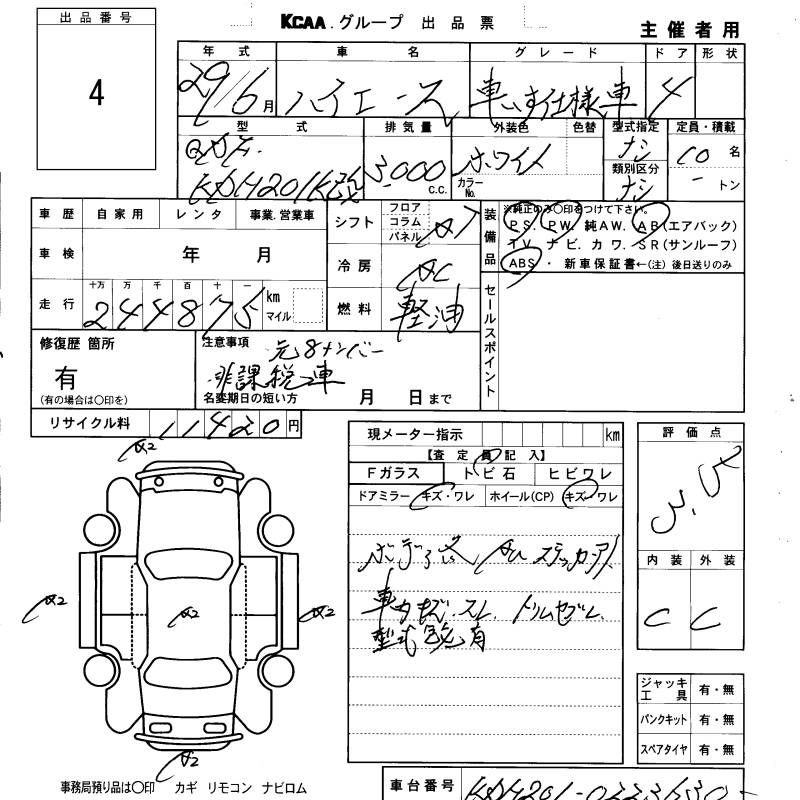 出品番号
4
KCAA.グループ 出品票
主催者用
年式 車名 グレード ドア 形状
29/6月 ハイエース 車いす仕様車 4
型式 排気量 外装色 色替 型式指定 定員・積載
QDF-
KDH201K改 3,000 C.C. ホワイト カラーNo. ナシ 10名
類別区分
ナシ - トン
車歴 自家用 レンタ 事業.営業車
シフト フロア コラム パネル AT
車検 年 月
冷房 AC
走行 十万 万 千 百 十 一
244875 km マイル
燃料 軽油
装備品 ※純正のみ〇印をつけて下さい。
PS. PW. 純AW. AB(エアバック)
TV. ナビ. カワ. SR(サンルーフ)
ABS ・ 新車保証書←(注) 後日送りのみ
セールスポイント
修復歴 箇所
有
(有の場合は〇印を)
注意事項 元8ナンバー
非課税車
名変期日の短い方 月 日まで
リサイクル料 11420円
現メーター指示 km
【査定員記入】
Fガラス トビ石 ヒビワレ
ドアミラー キズ・ワレ ホイール(CP) キズ・ワレ
ステッカーアト
車内キズ.スレ.
型式 有
評価点
3.5
内装 外装
C C
A2
A2
A2
A2
A2
ジャッキ工具 有・無
パンクキット 有・無
スペアタイヤ 有・無
事務局預り品は〇印 カギ リモコン ナビロム
車台番号 KDH201-0223630